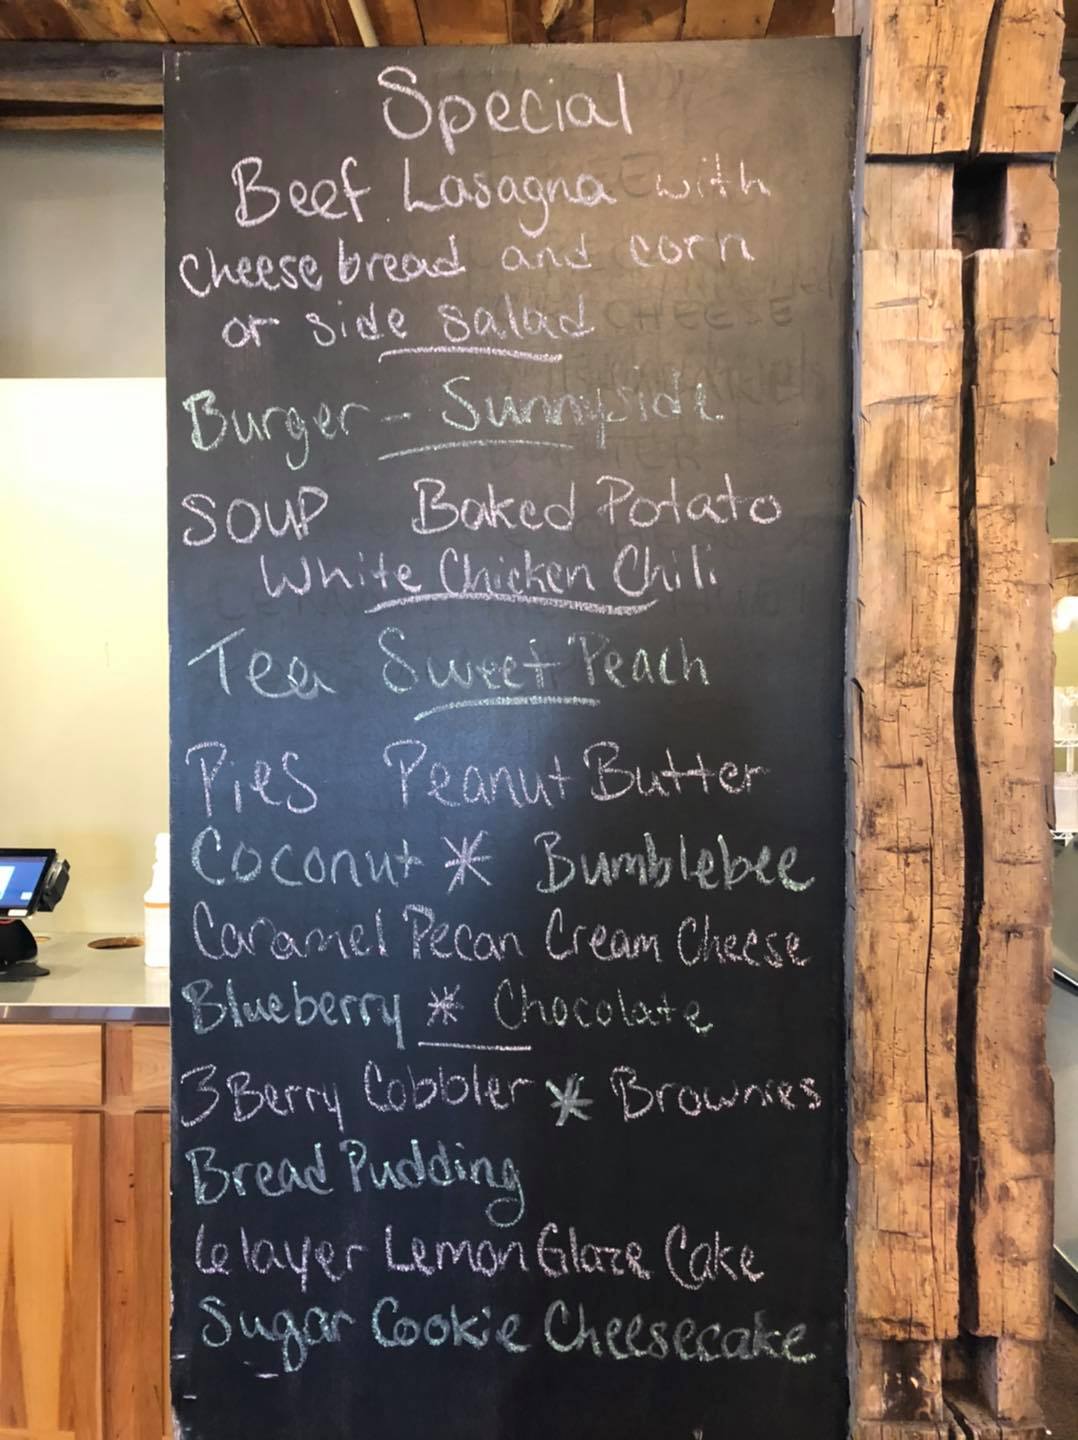 Special
Beef Lasagna with
cheese bread and corn
or side salad
Burger - Sunnyside
SOUP Baked Potato
White Chicken Chili
Tea Sweet Peach
Pies Peanut Butter
Coconut * Bumblebee
Caramel Pecan Cream Cheese
Blueberry * Chocolate
3 Berry Cobbler * Brownies
Bread Pudding
6 layer Lemon Glaze Cake
Sugar Cookie Cheesecake